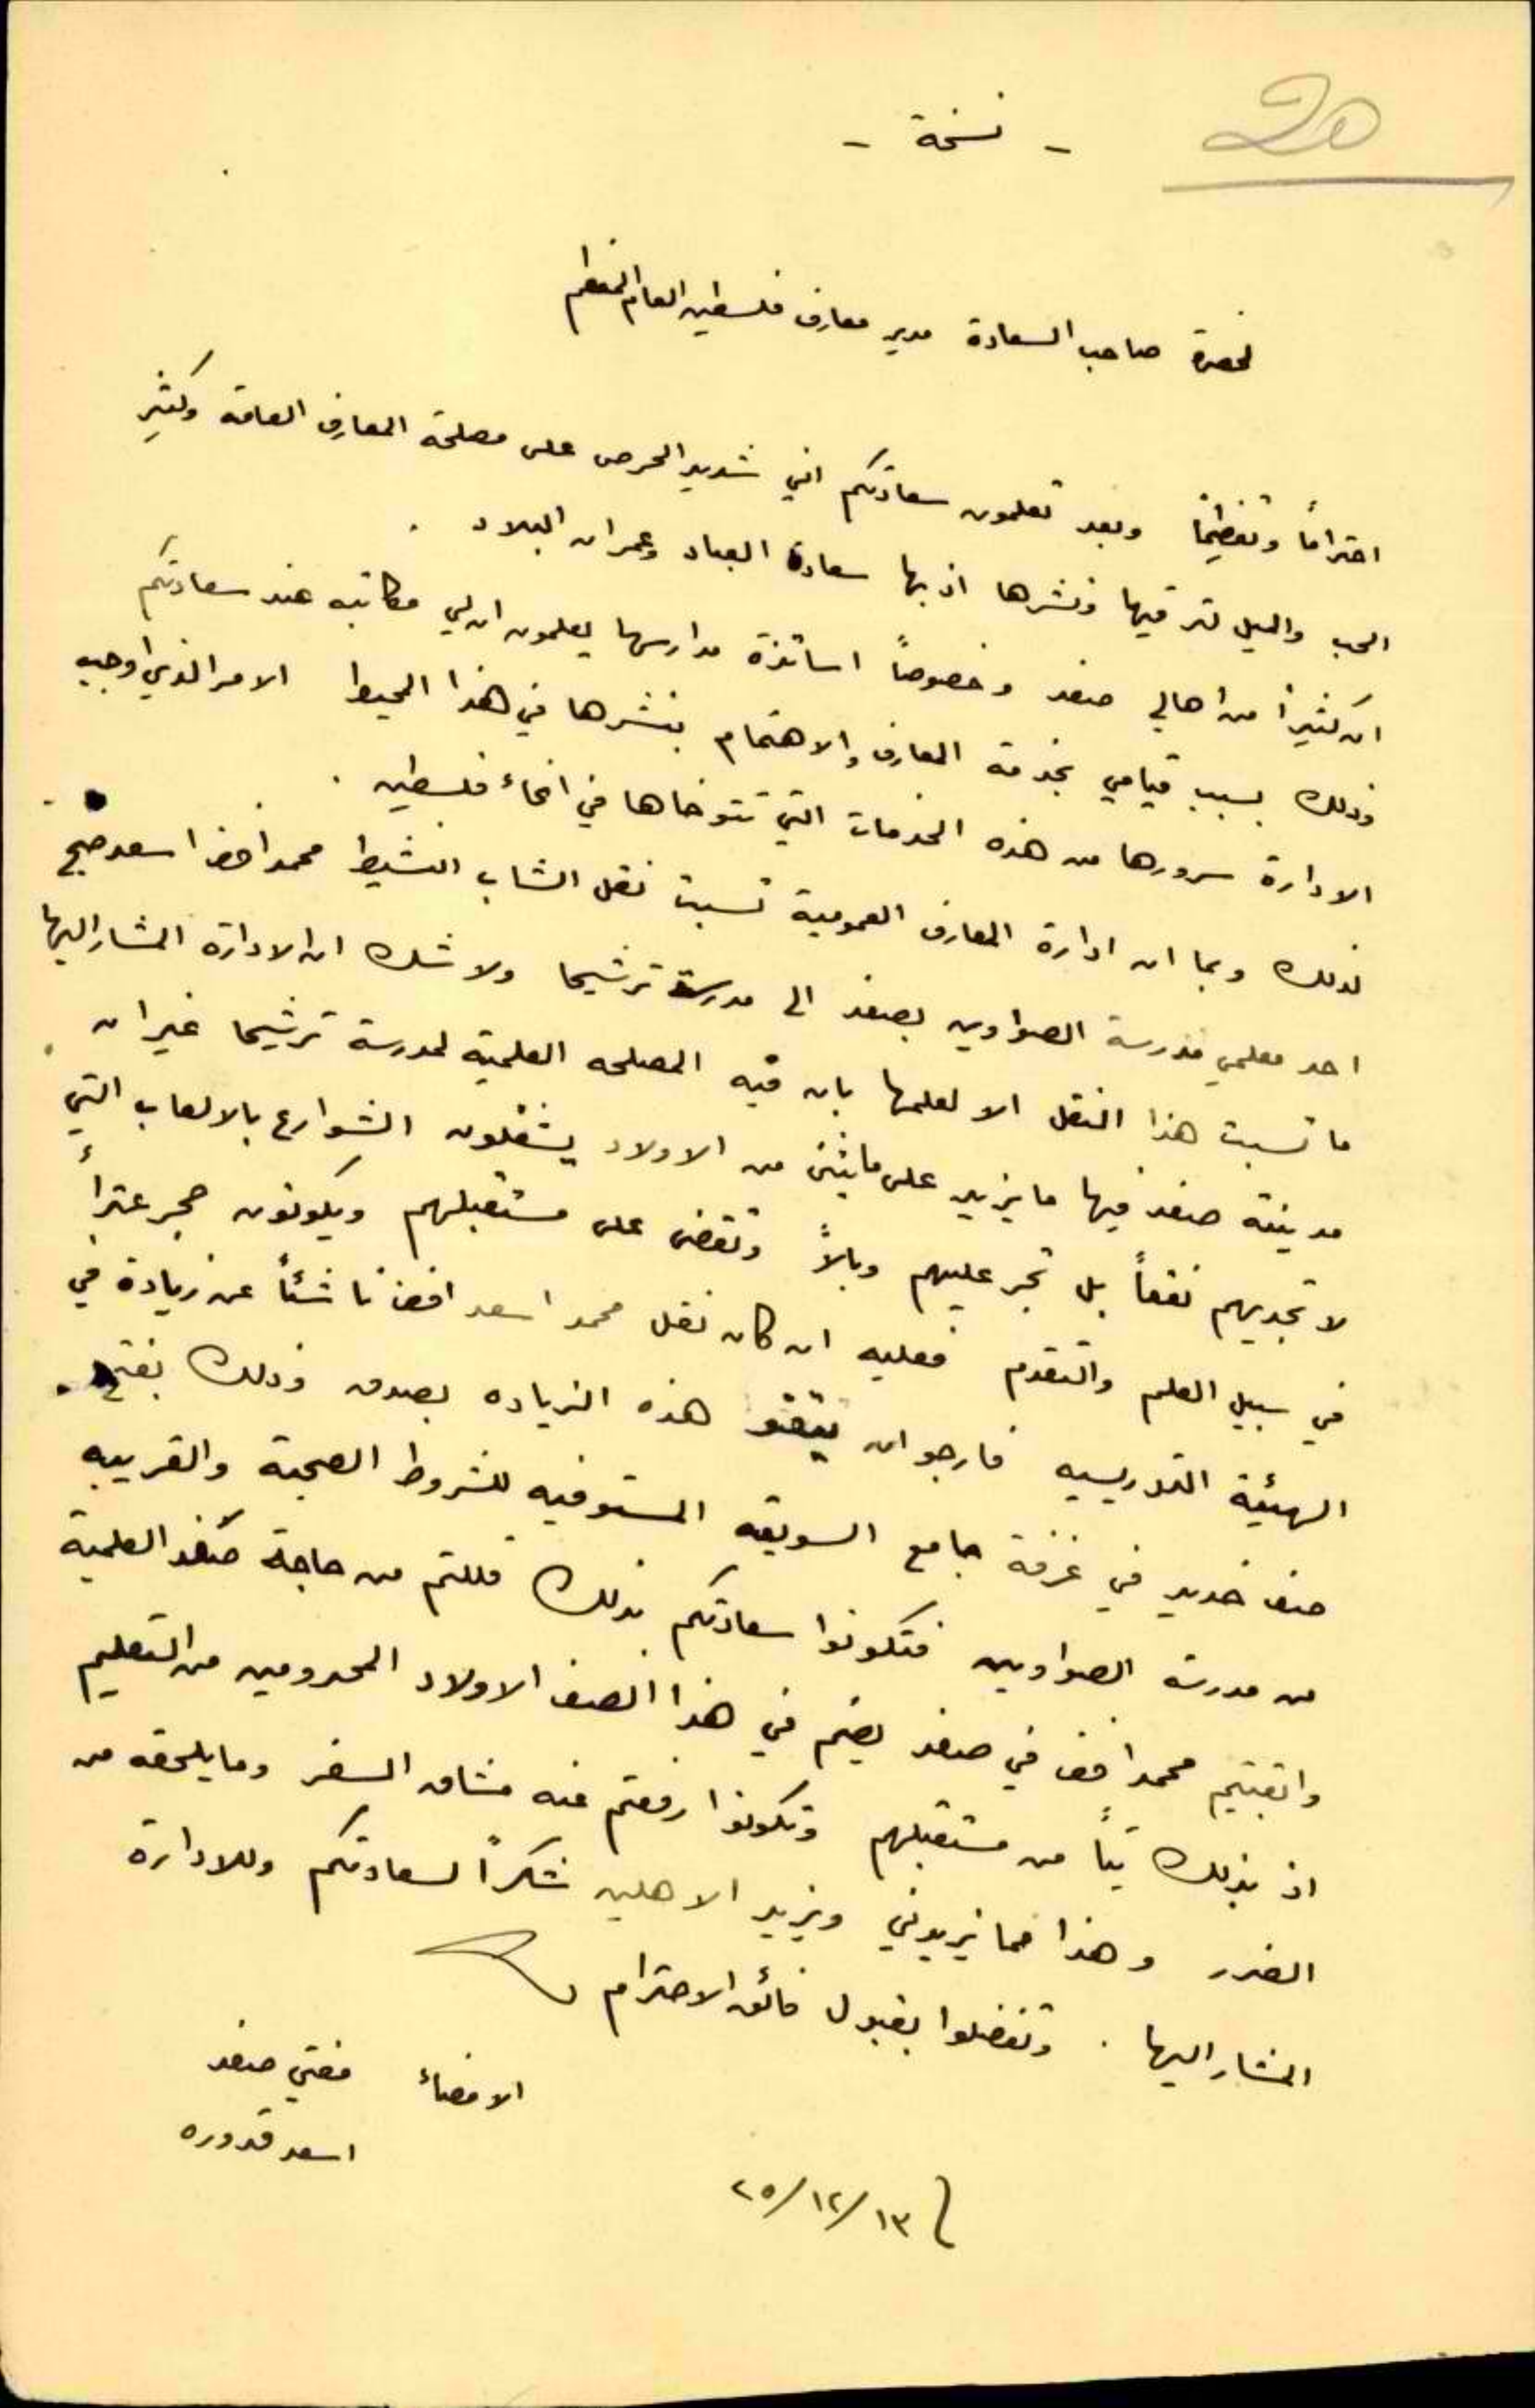 20
- نسخة -
لحضرة صاحب السعادة مدير معارف فلسطين العام المعظم
احتراماً وتعظيماً وبعد تعلمون سعادتكم اني شديد الحرص على مصلحة المعارف العامة وكثير
الحب والميل لترقيها ونشرها اذ بها سعادة العباد وعمران البلاد .
ان كثيراً من اهالي صفد وخصوصاً اساتذة مدارسها يعلمون ان لي مكاتبه عند سعادتكم
وذلك بسبب قيامي بخدمة المعارف والاهتمام بنشرها في هذا المحيط الامر الذي اوجب
الادارة سرورها من هذه الخدمات التي تتوخاها في انحاء فلسطين .
لذلك وبما ان ادارة المعارف العمومية نسبت نقل الشاب النشيط محمد افندي اسعد
احد معلمي مدرسة الصواوين بصفد الى مدرسة ترشيحا ولا شك ان الادارة المشار اليها
ما نسبت هذا النقل الا لعلمها بان فيه المصلحه العلمية لمدرسة ترشيحا غير ان
مدينة صفد فيها ما يزيد على مايتين من الاولاد يشغلون الشوارع بالالعاب التي
لا تجديهم نفعاً بل تجر عليهم وبالاً وتقضى على مستقبلهم ويكونون حجر عثرة
في سبيل العلم والتقدم فعليه ان كان نقل محمد اسعد افندي ناشئاً عن زيادة في
الهيئة التدريسيه فارجو ان تبقوا هذه الزياده بصفد وذلك بفتح
صف جديد في غرفة جامع السويقه المستوفيه للشروط الصحية والقريبه
من مدرسة الصواوين فتكونوا سعادتكم بذلك قللتم من حاجة صفد العلمية
وابقيتم محمد افندي في صفد يضم في هذا الصف الاولاد المحرومين من التعليم
اذ بذلك من مستقبلهم وتكونوا رفعتم عنه مشاق السفر وما يلحقه من
الضرر وهذا مما يزيدني ويزيد الاهلين شكراً لسعادتكم وللادارة
المشار اليها . وتفضلوا بقبول فائق الاحترام
الامضاء مفتي صفد
اسعد قدوره
٢٥/١٢/١٣